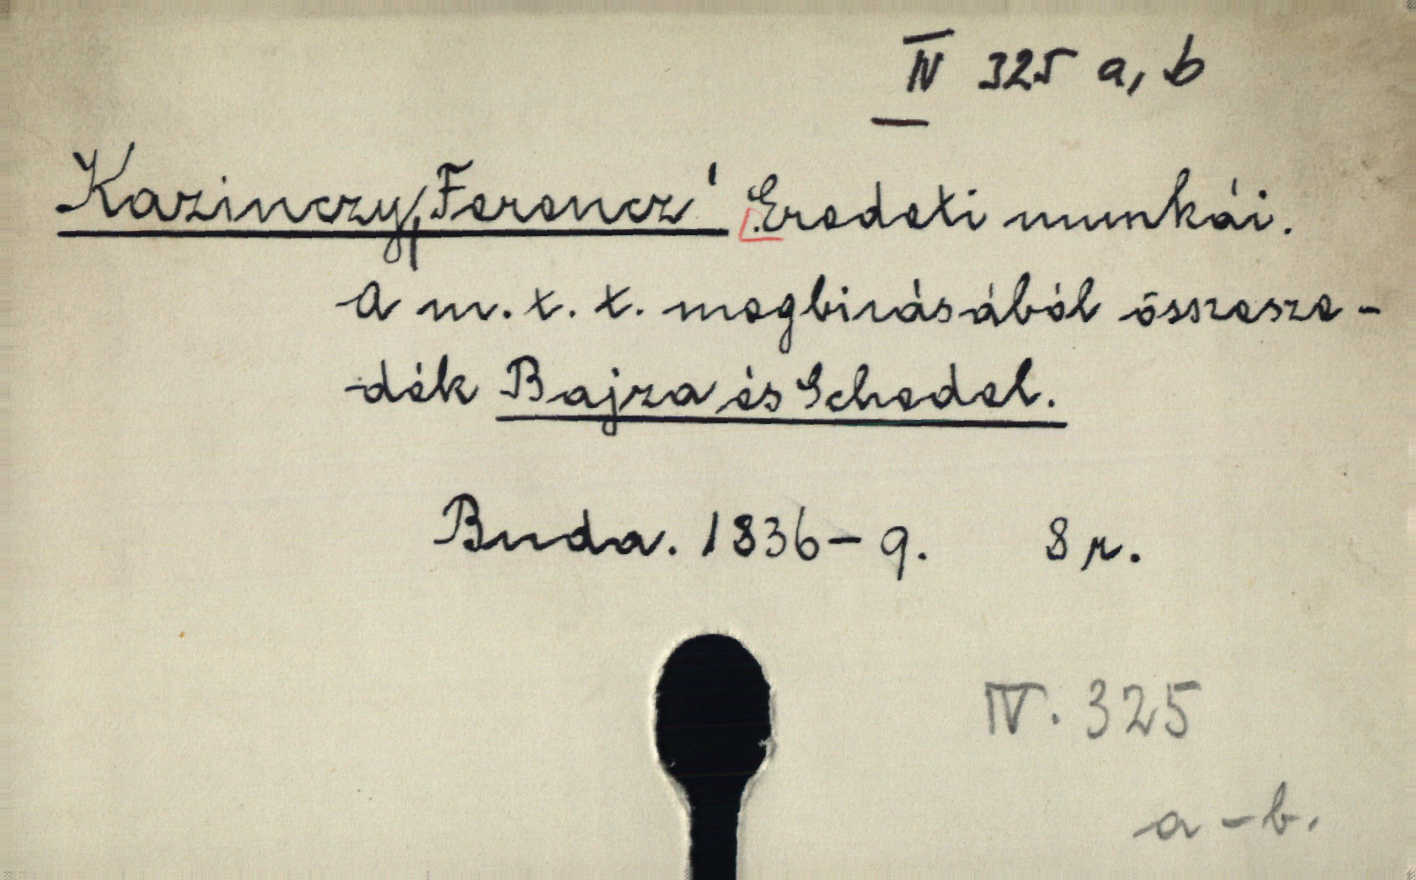 IV 325 a, b
Kazinczy, Ferencz' Eredeti munkái.
A m. t. t. megbirásából összesze-
dék Bajza és Schedel.
Buda. 1836-9. 8 r.
IV. 325
a-b.